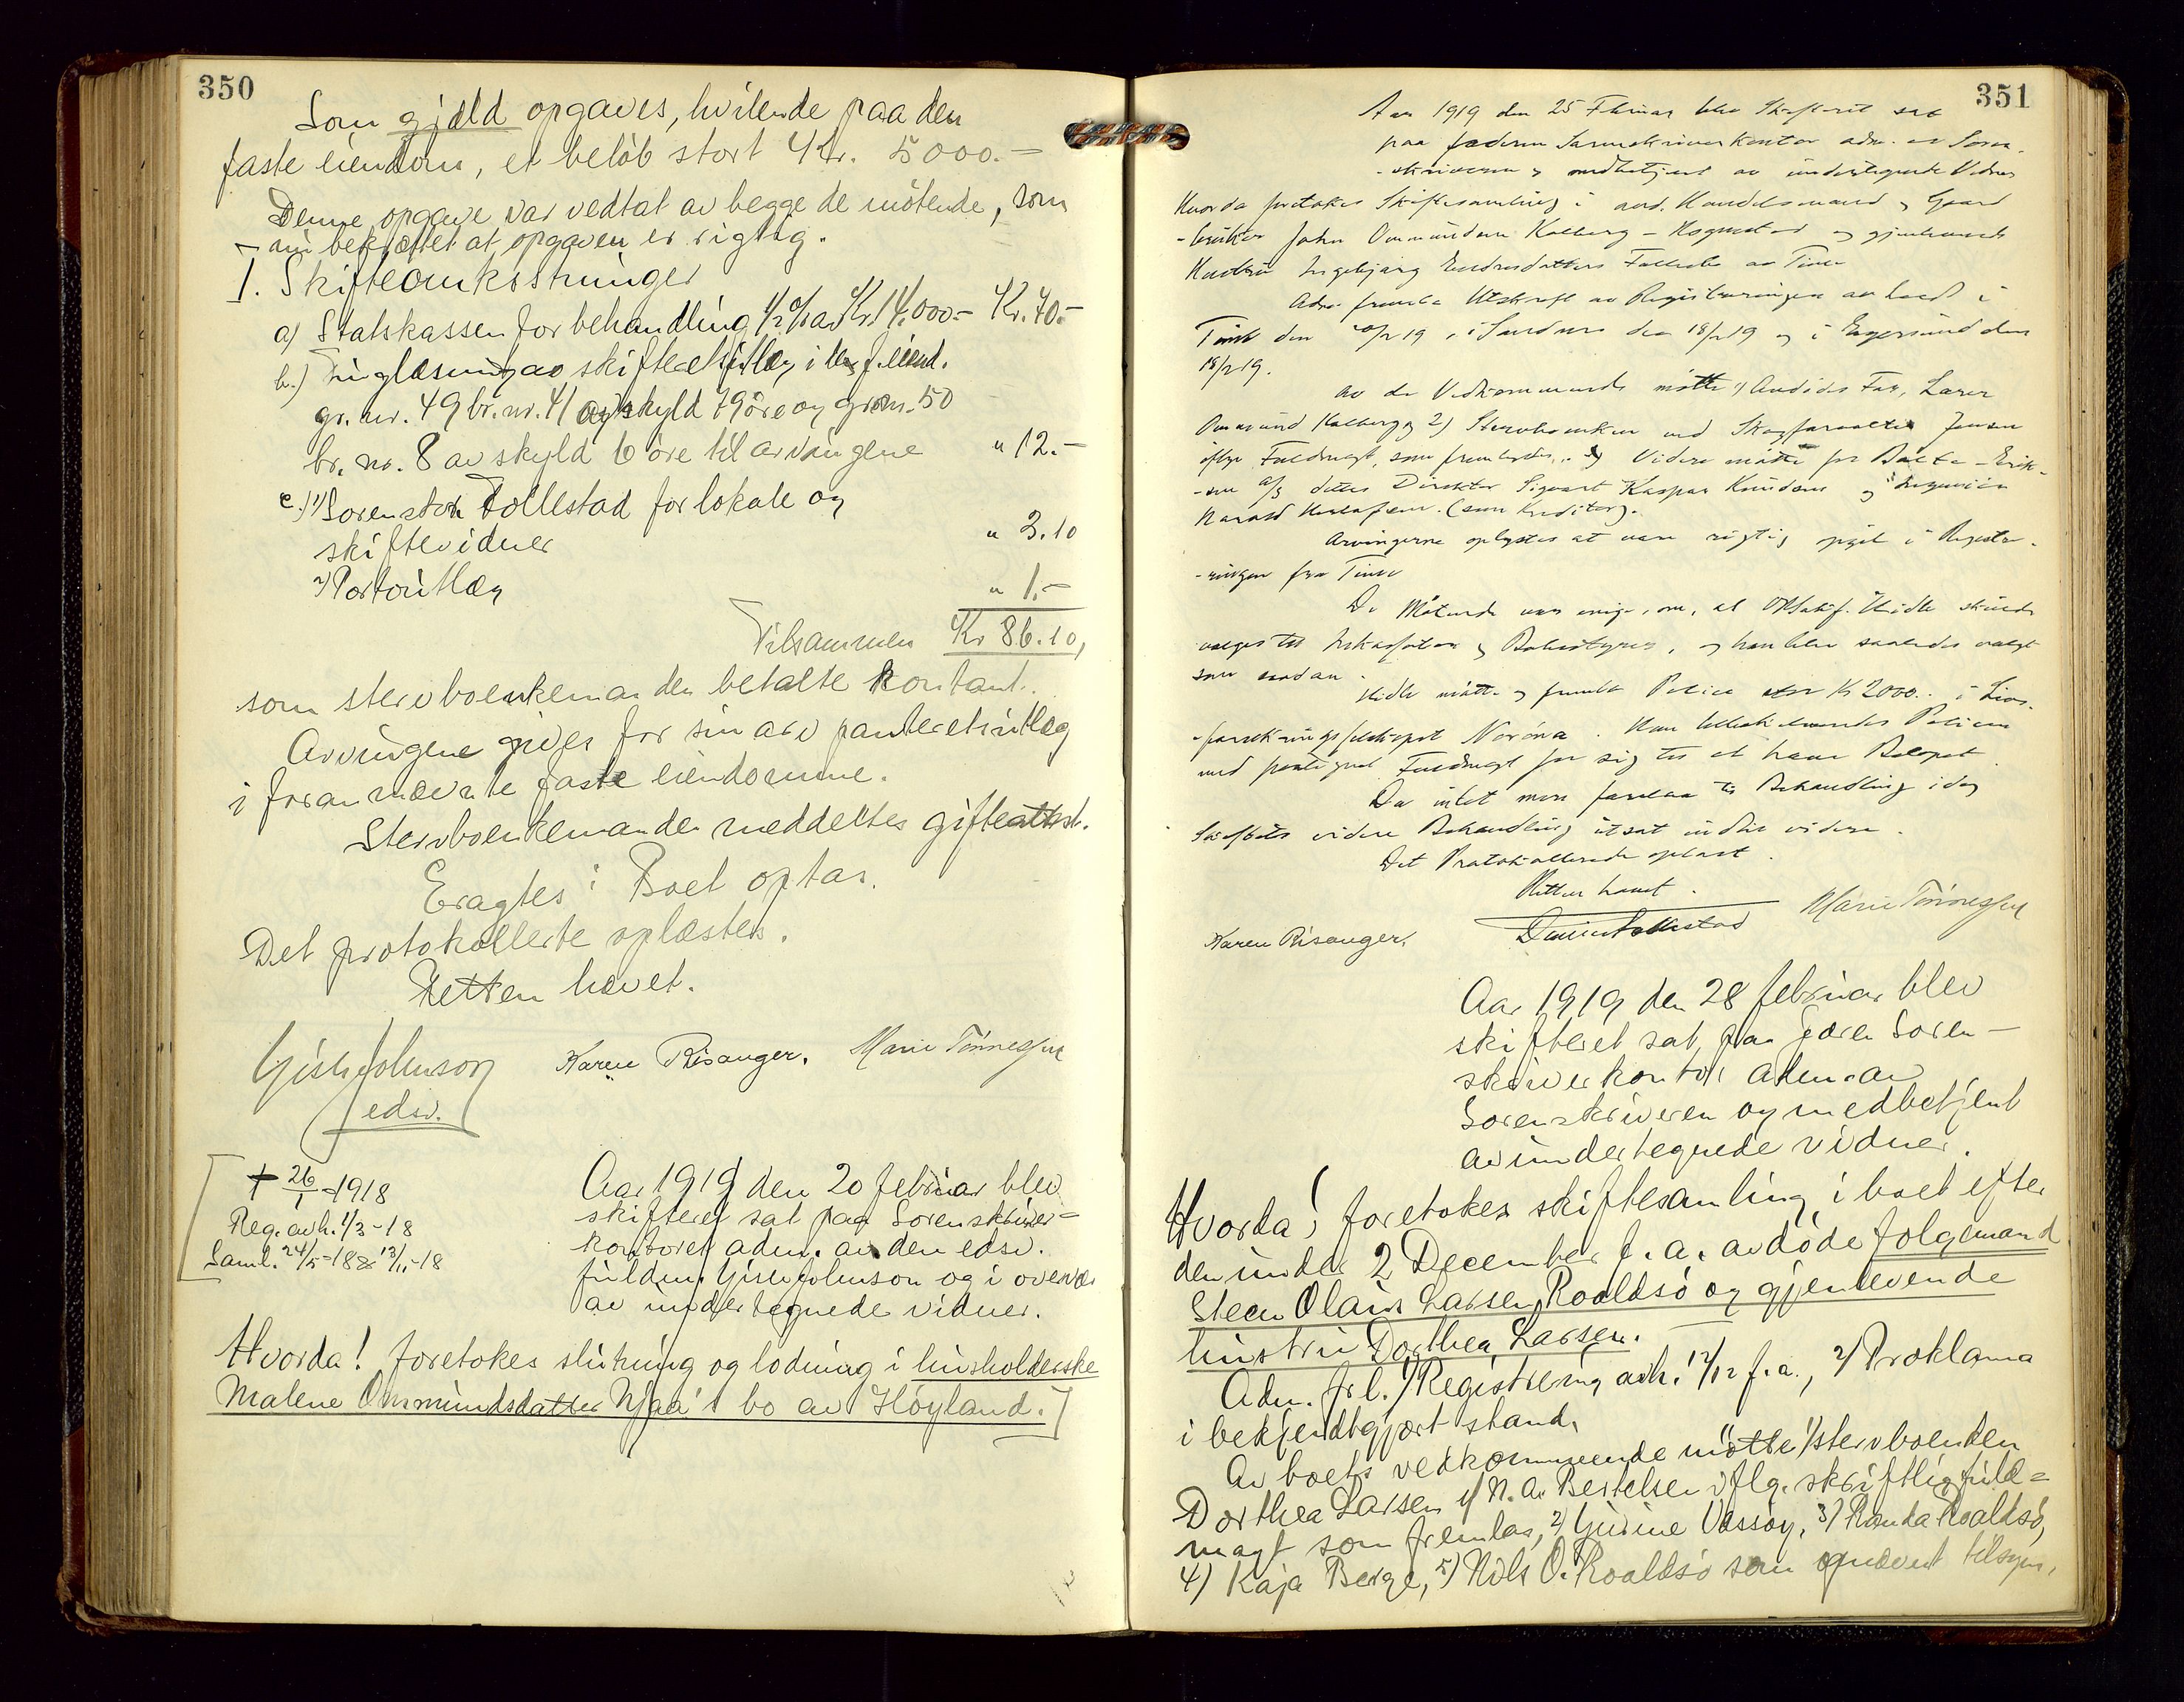 350
Som gjæld opgaves, hvilende paa den
faste eiendom, et beløb stort Kr. 5000.-
Denne opgave var vedtat av begge de møtende, som
- nu bekræftet at opgaven er rigtig.
1. Skifteomkostninger
a) Statskassen for behandling 1/2 % av Kr. 14.000.- Kr. 70.-
b.) Tinglæsning av skifteutlæg i den f. eiend.
gr. nr. 49 br. nr. 41 av skyld 79 øre og grnr. 50
br. nr. 8 av skyld 6 øre til arvingene " 12.-
c.) 1) Sorenskr. Follestad for lokale og
skiftevidner " 3.10
2) Portoutlæg " 1.-
Tilsammen Kr 86.10,
som stervboenkemanden betalte kontant.
Arvingene gives for sin arv panteretsutlæg
i forannævnte faste eiendomme.
Stervboenkemanden meddeltes gifteattest.
Eragtes: Boet optar.
Det protokollerte oplæstes.
Retten hævet.
Gisle Johnson
edsv.
Karen Risanger. Marie Tönnessen
† 26/1-1918
Reg. avh. 1/3-18
Saml. 24/5-18 & 13/11-18
Aar 1919 den 20 februar blev
skifteret sat paa Sorenskriver=
kontoret adm. av den edsv.
fuldm. Gisle Johnson og i overvær
av undertegnede vidner.
Hvorda! foretokes slutning og lodning i husholderske
Malene Ommundsdatter Njaa's bo av Høyland.
351
Aar 1919 den 25 Februar blev Skifteret sat
paa Jæderen Sorenskriverkontor adm. av Soren-
-skriveren og medbetjent av undertegnede Vidner
Hvorda foretokes Skiftesamling i avd. Handelsmand og Gaard
-bruker John Ommundsen Kalberg - Hognestad og gjenlevende
Hustru Ingebjørg Endresdatters Fællesbo av Time
Adm. fremla Utskrift av Registreringen avholdt i
Time den 10/2 19, i Sandnes den 18/2 19 og i Egersund den
18/2 19.
Av de Vedkommende møtte 1) Avdødes Far, Lærer
Ommund Kalberg og 2) Stervboenken ved Skogforvalter Jonsen
ifølge Fuldmagt, som fremlagdes. Videre møtte for
-sen A/S dettes Direktør Sigvart Kaspar Knudsen og Ingeniør
Harald (som Kreditor).
Arvingerne oplystes at være rigtig opgit i Registre-
-ringen fra Time
De Møtende var enige om, at skulde
vælges til Inkassator og Bobestyrer, og han blev saaledes valgt
som saadan.
møtte og fremla Police stor Kr 2000.- i Livs-
-forsikringsselskapet Norøna. Han tilbakeleverades Policen
med paategnet Fuldmagt for sig til at hæve Beløpet.
Da intet mere forelaa til Behandling idag
Skiftets videre Behandling utsat indtil videre.
Det Protokollerede oplæst.
Retten hævet.
Karen Risanger. Marie Tönnessen
Aar 1919 den 28 februar blev
skifteret sat paa Jæren Soren-
skriverkontor adm. av
Sorenskriveren og medbetjent
av undertegnede vidner.
Hvorda! foretokes skiftesamling i boet efter
den under 2 December f. a. avdøde følgemand
Steen Olaus Larsen Roaldsø og gjenlevende
hustru Dorthea Larsen.
Adm. frl. 1) Registrering avh. 12/12 f. a., 2) Proklama
i bekjendtgjort stand.
Av boets vedkommende møtte 1) stervboenken
Dorthea Larsen v/ N. A. Bertelsen iflg. skriftlig fuld=
magt som fremlas, 2) Gurine Vassøy, 3) Randa Roaldsø,
4) Kaja Berge, 5) Nils O. Roaldsø som opnævnt tilsyns,